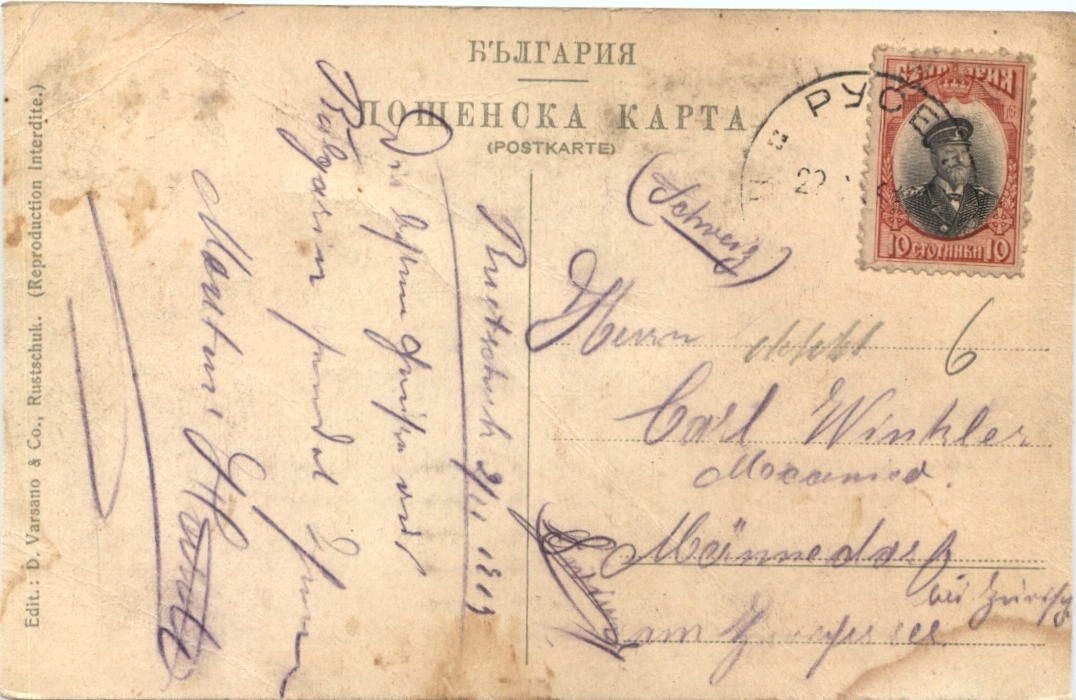 БЪЛГАРИЯ
ПОЩЕНСКА КАРТА
(POSTKARTE)
Edit.: D. Varsano & Co., Rustschuk. (Reproduction Interdite.)
РУСЕ
22
БЪЛГАРИЯ
10 СТОТИНКИ 10
(Schweiz)
Herrn
6
Carl Winkler
Mecanicer.
Männedorf
bei Zürich
am
Rustschuk
Die besten Grüsse aus
Bulgarien sendet Ihnen
Martin